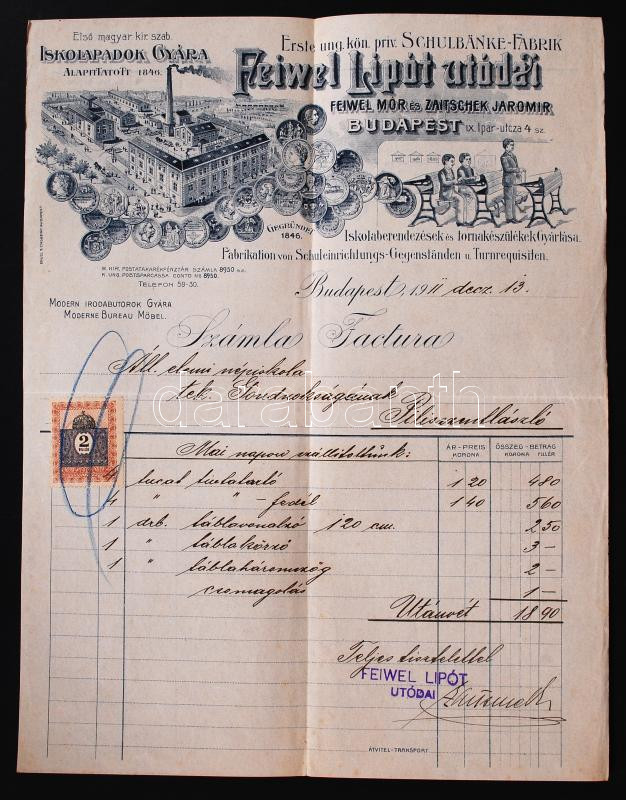 Első magyar kir. szab.
ISKOLAPADOK GYÁRA
ALAPITTATOTT 1846.
Erste ung. kön. priv. SCHULBÄNKE-FABRIK
Feiwel Lipót utódai
FEIWEL MÓR ÉS ZAITSCHEK JAROMIR
BUDAPEST IX. Ipar-utcza 4 sz.
GEGRÜNDET
1846.
Iskolaberendezések és Tornakészülékek Gyártása.
Fabrikation von Schuleinrichtungs-Gegenständen u. Turnrequisiten.
M. KIR. POSTATAKARÉKPÉNZTÁR SZÁMLA 8950 sz.
K. UNG. POSTSPARCASSA CONTO No 8950.
TELEFON 59-30.
Budapest, 1911 decz. 13.
MODERN IRODABUTOROK GYÁRA
MODERNE BUREAU MÖBEL.
Számla Factura
Áll. elemi népiskola
tek. Gondnokságának
Piliszentlászló
2
ÁR-PREIS KORONA ÖSSZEG-BETRAG KORONA FILLÉR
Mai napon szállítottunk:
4 tucat tintatartó 1 20 4 80
4 " " -fedél 1 40 5 60
1 drb. táblavonalzó 120 cm. 2 50
1 " táblakörző 3 —
1 " táblaháromszög 2 —
csomagolás 1 —
Utánvét 18 90
Teljes tisztelettel
FEIWEL LIPÓT
UTÓDAI
ÁTVITEL-TRANSPORT
darabanth